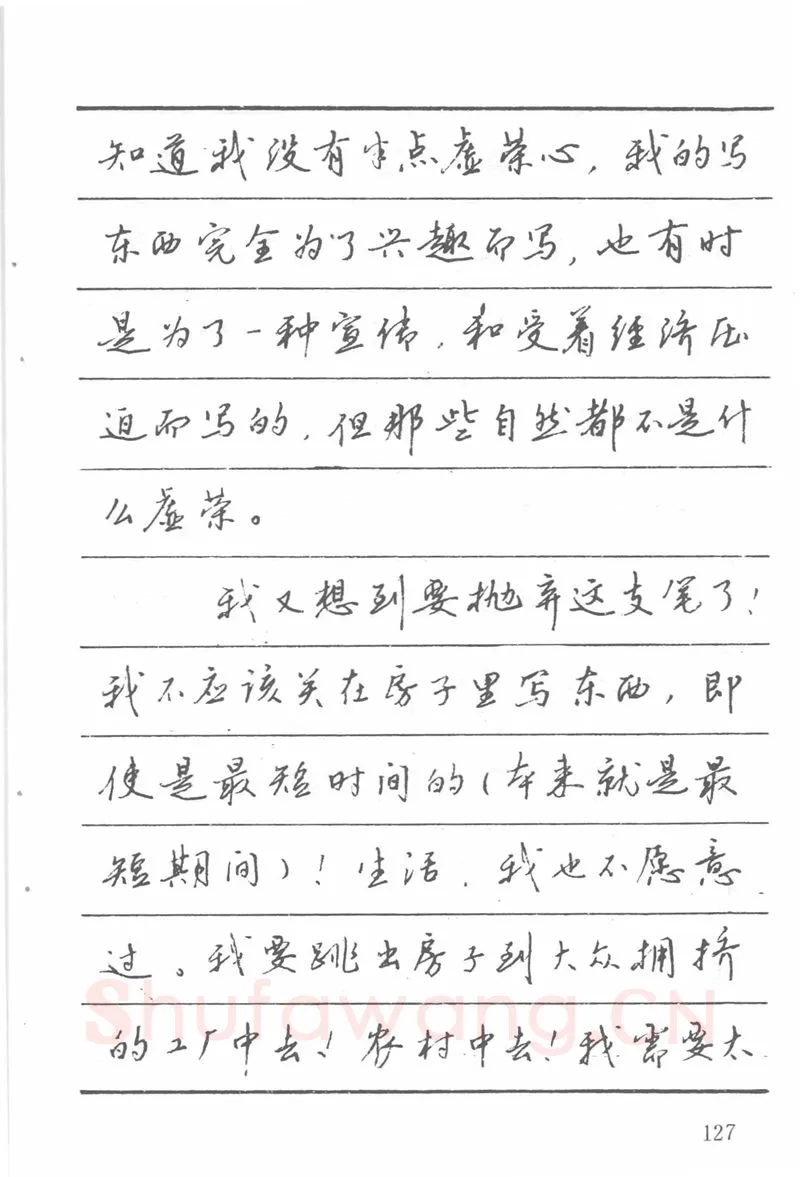 知道我没有半点虚荣心，我的写
东西完全为了兴趣而写，也有时
是为了一种宣传，和受着经济压
迫而写的，但那些自然都不是什
么虚荣。
我又想到要抛弃这支笔了！
我不应该关在房子里写东西，即
使是最短时间的（本来就是最
短期间）！生活，我也不愿意
过。我要跳出房子到大众拥挤
的工厂中去！农村中去！我需要太
Shufawang.CN
127